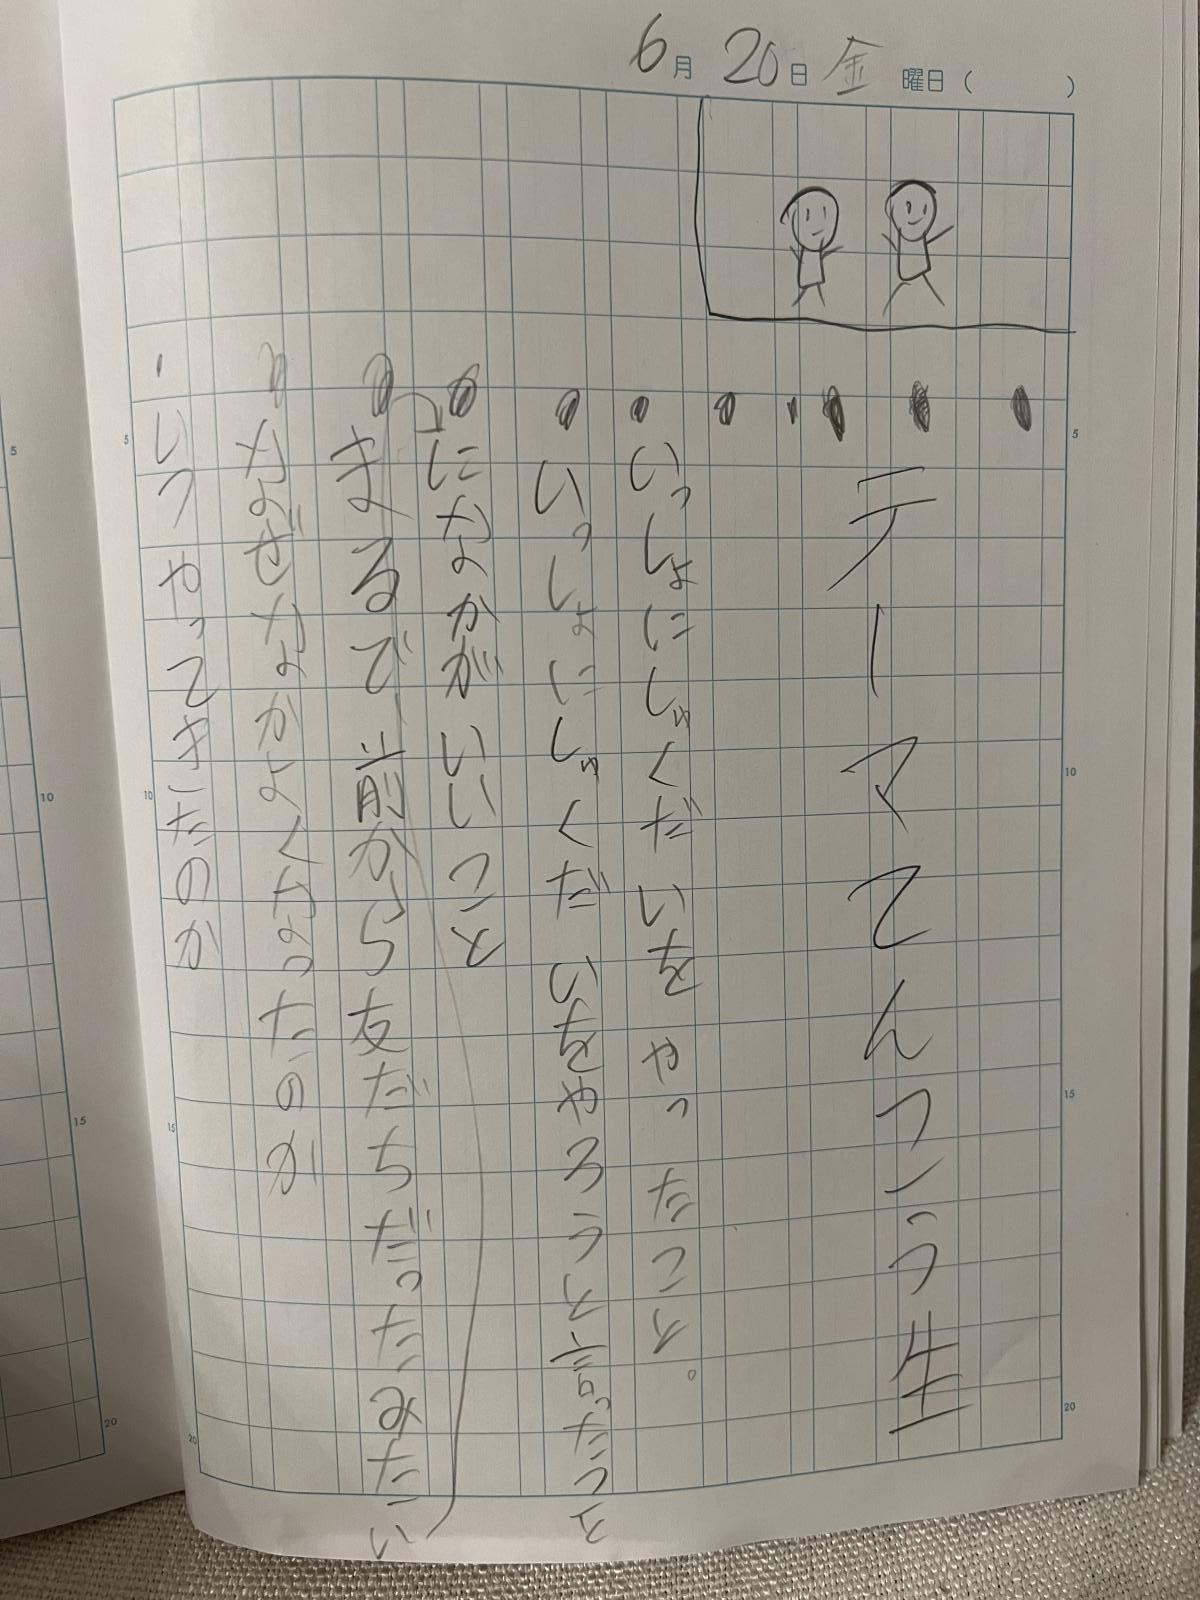 6月20日金曜日( )
テーマてんこう生
いっしょにしゅくだいをやったこと。
いっしょにしゅくだいをやろうと言ったこと
になかがいいこと
まるで前から友だちだったみたい
なぜなかよくなったのか
いつやってきたのか
5
10
15
20
5
10
15
20
5
10
15
20